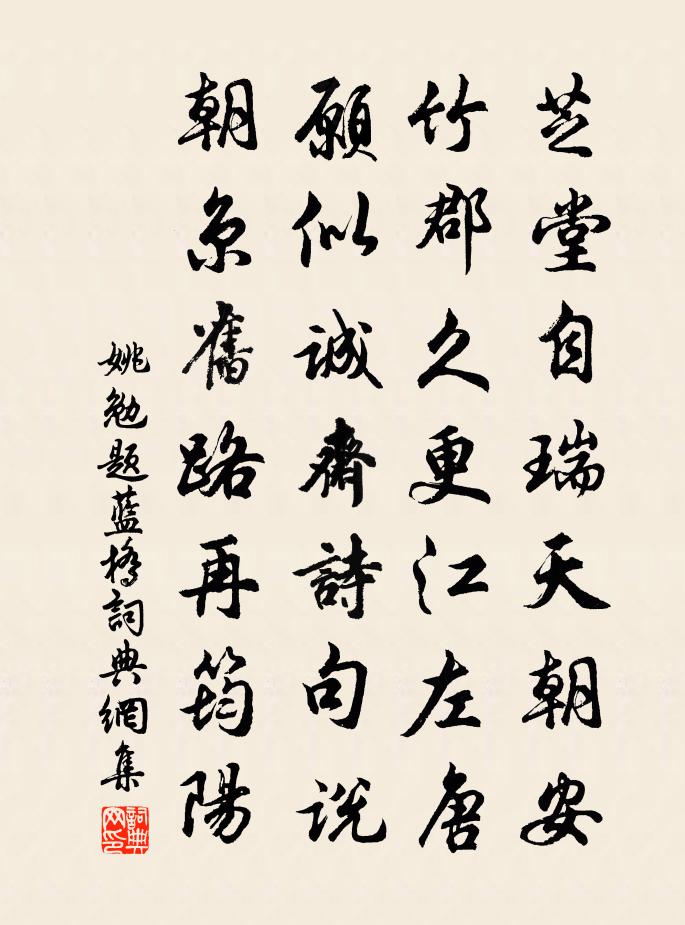 芝堂自瑞天朝安
竹郡久更江左唐
願似誠齋詩句說
朝京舊路再筠陽
姚勉題藍橋詞典網集
詞典網印